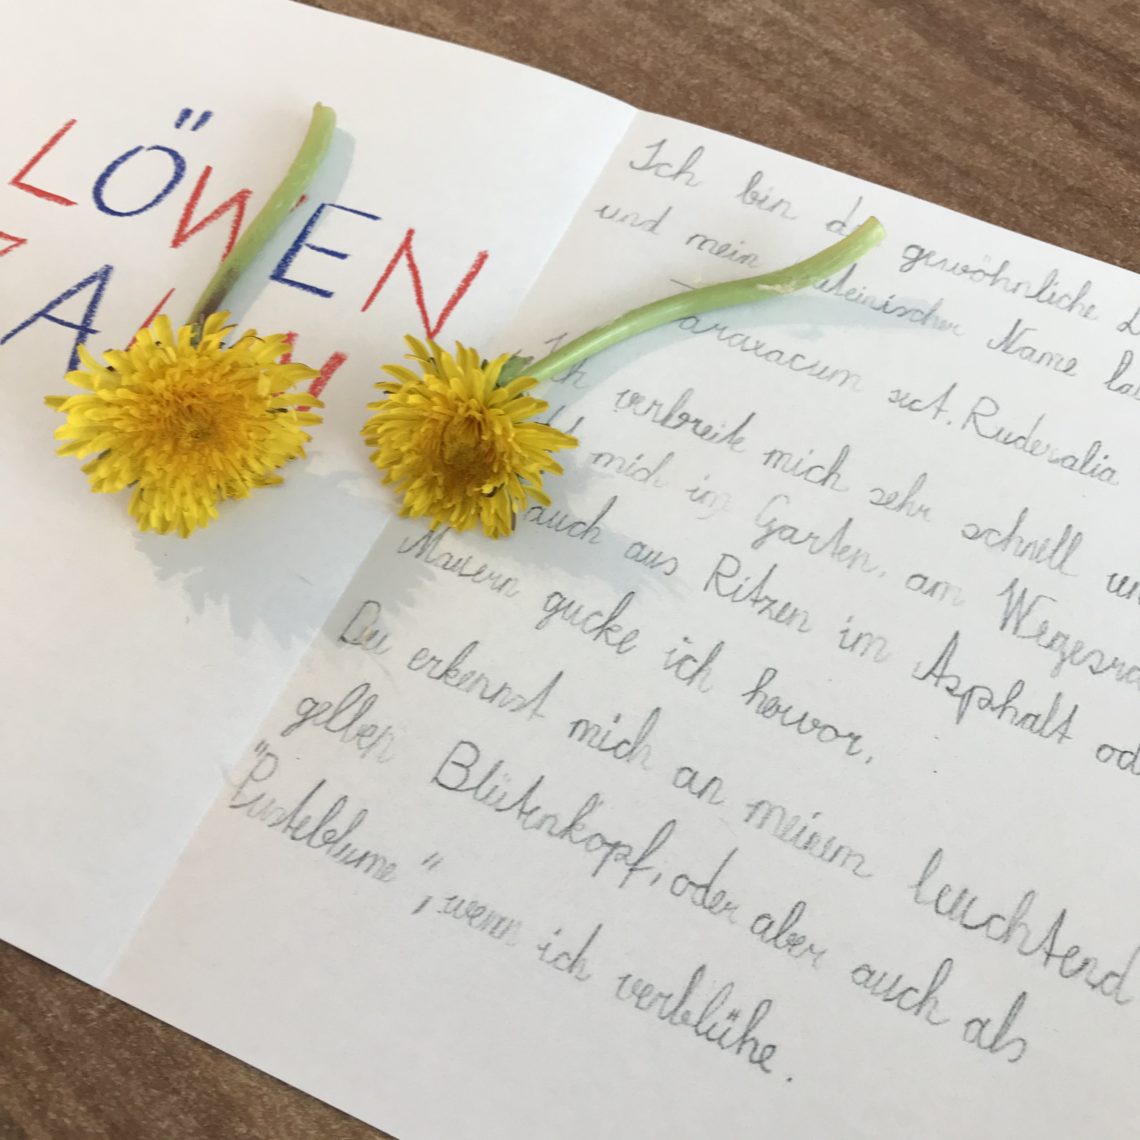 LÖWEN
ZAHN
Ich bin gewöhnliche
und mein lateinischer Name
Taraxacum sect. Ruderalia
Ich verbreite mich sehr schnell
mich im Garten, am
auch aus Ritzen im Asphalt
Mauern gucke ich hervor.
Du erkennst mich an meinem leuchtend
gelben Blütenkopf, oder aber auch als
"Pusteblume", wenn ich verblühe.